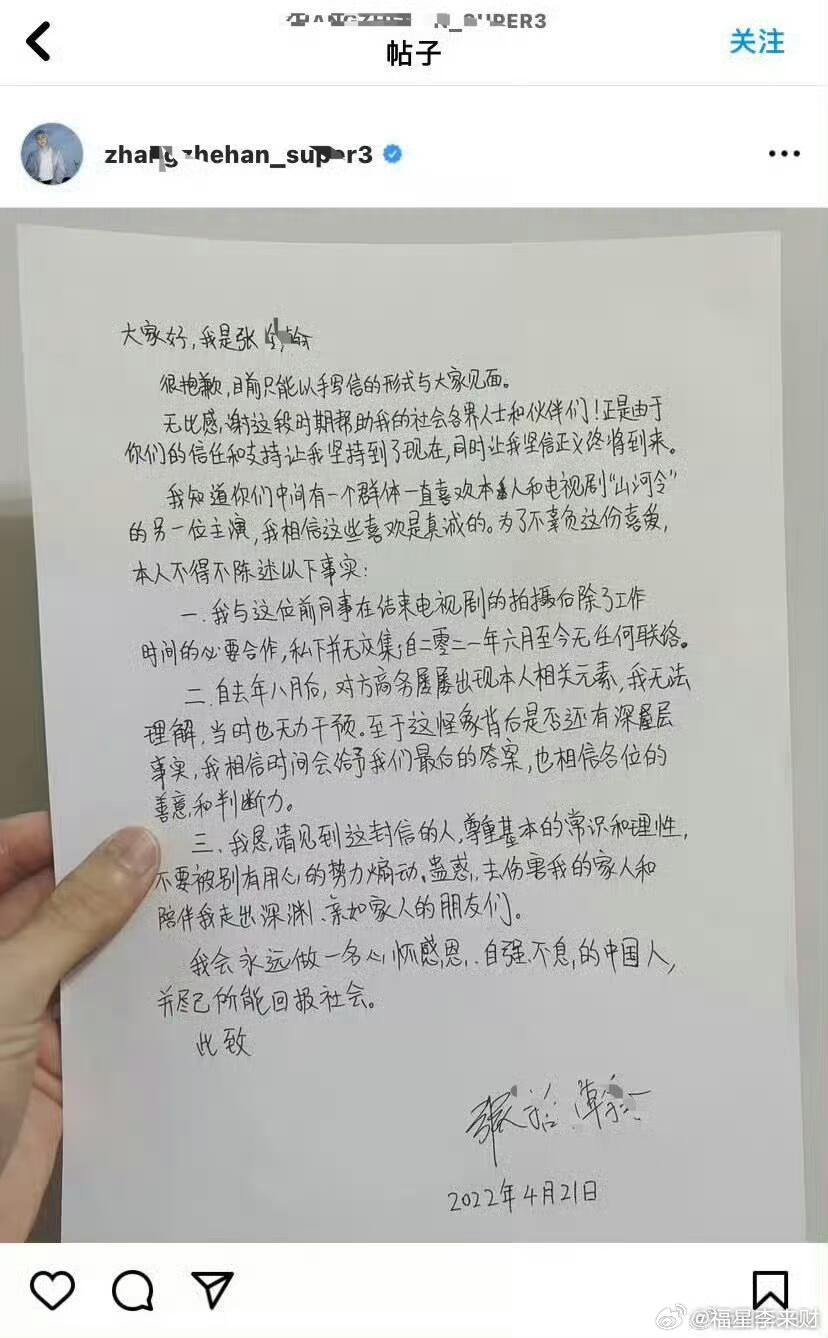 帖子
关注
zhangzhehan_super3
大家好，我是张
很抱歉，目前只能以手写信的形式与大家见面。
无比感谢这段时期帮助我的社会各界人士和伙伴们！正是由于
你们的信任和支持让我坚持到了现在，同时让我坚信正义终将到来。
我知道你们中间有一个群体一直喜欢本人和电视剧“山河令”
的另一位主演，我相信这些喜欢是真诚的。为了不辜负这份喜爱，
本人不得不陈述以下事实：
一.我与这位前同事在结束电视剧的拍摄后除了工作
时间的必要合作，私下并无交集；自二零二一年六月至今无任何联络。
二.自去年八月后，对方商务屡屡出现本人相关元素，我无法
理解，当时也无力干预。至于这怪象背后是否还有深层
事实，我相信时间会给予我们最后的答案，也相信各位的
善意和判断力。
三、我恳请见到这封信的人，尊重基本的常识和理性，
不要被别有用心的势力煽动、蛊惑，去伤害我的家人和
陪伴我走出深渊、亲如家人的朋友们。
我会永远做一名心怀感恩、自强不息的中国人，
并尽己所能回报社会。
此致
张哲瀚
2022年4月21日
@福星李来财